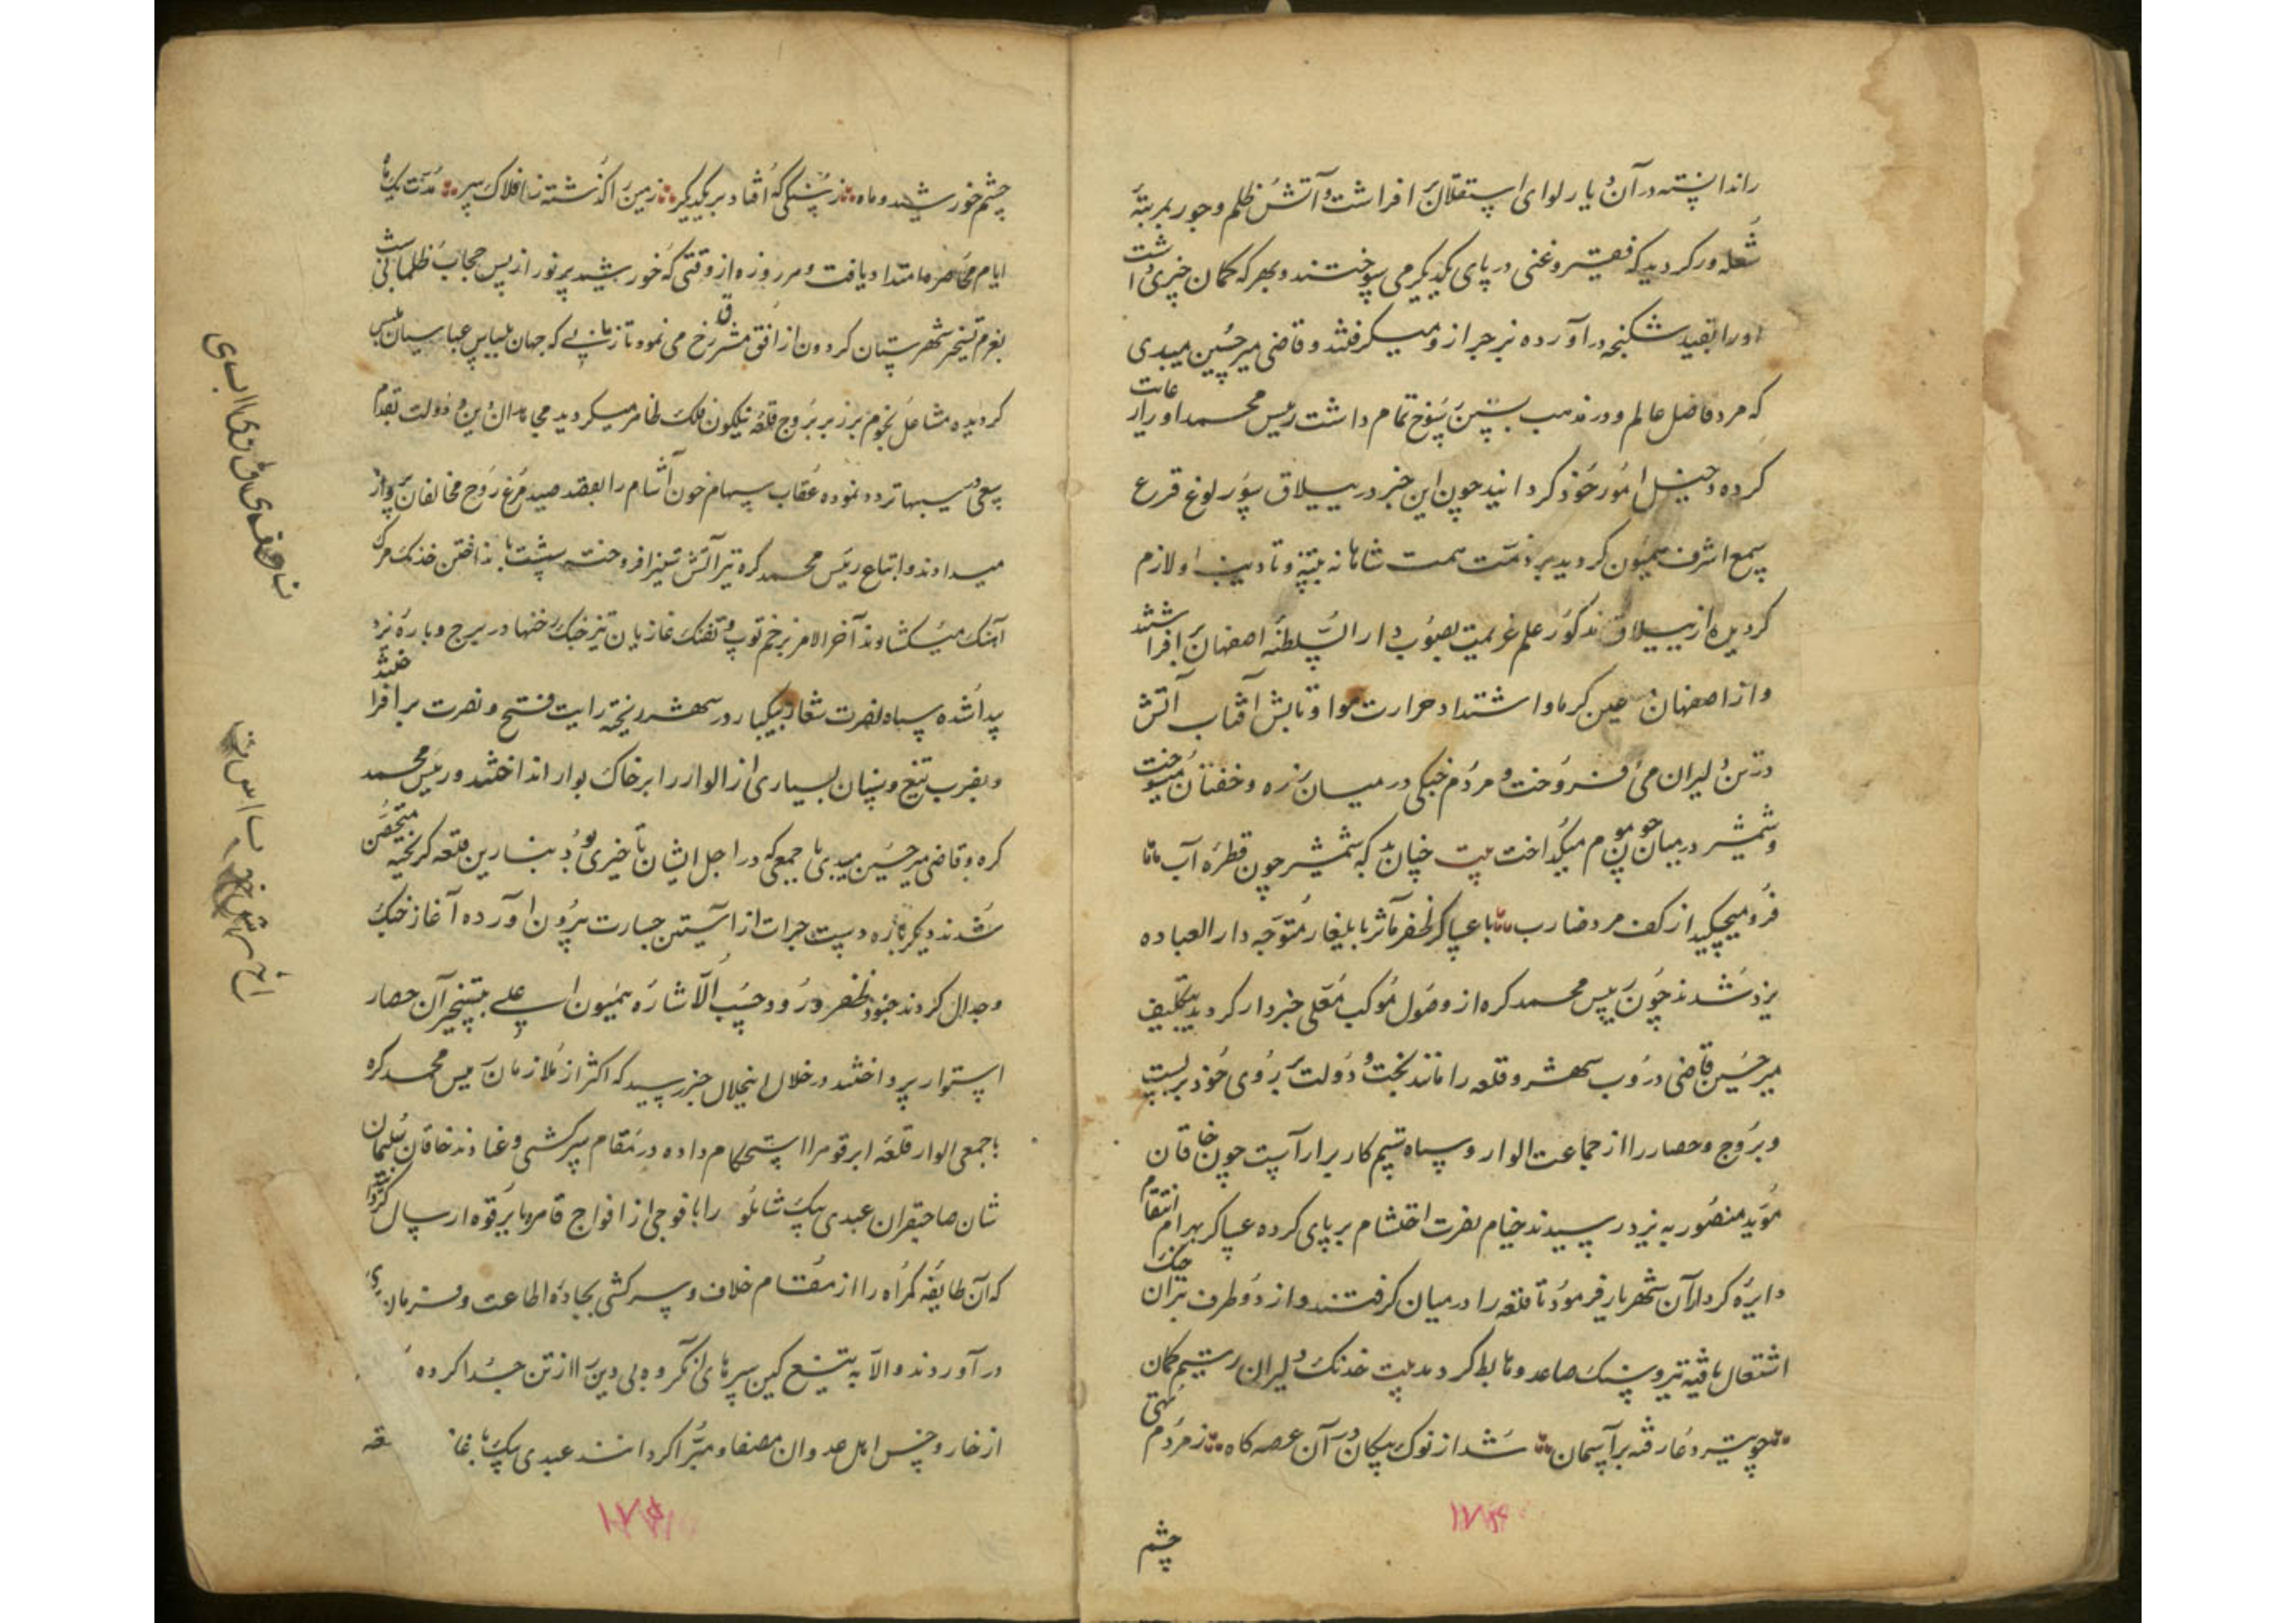 را ندانسته در آن دیار لوای استقلال بر افراشت و آتش ظلم و جور بمرتبهٔ
شعله ور کردید که فقیر و غنی در پای یکدیکر می سوختند و بهر که کمان چیزی داشت
او را بقید شکنجه در آورده بزجر از و میکرفتند و قاضی میر حسین میبدی
که مرد فاضل عالم و در مذهب تسنن رسوخ تمام داشت رئیس محمد او را رعایت
کرده دخیل امور خود کردانید چون این خبر در ییلاق سورلوغ قرع
سمع اشرف همیون کردید بر ذمت همت شاهانه تنبیه و تادیب او لازم
کردیده از ییلاق مذکور علم عزیمت بصوب دار السلطنهٔ اصفهان بر افراشتند
و از اصفهان عین کرما و اشتداد حرارت هوا و تابش آفتاب آتش
در تن دلیران می افروخت و مردم جنکی در میان زره و خفتان میسوخت
و شمشیر در میان چون موم میکداخت بیت چنان بد که شمشیر چون قطره آب
فرو میچکید از کف مرد ضارب با عساکر ظفر مآثر بایلغار متوجه دار العباده
یزد شدند چون رییس محمد کره از وصول موکب معلی خبردار کردید بتکلیف
میر حسین قاضی دروب شهر و قلعه را مانند بخت و دولت بر روی خود بربست
و بروج و حصار را از جماعت الوار و سپاه ستیم کار برار آست چون خاقان
موید منصور به یزد رسیدند خیام نصرت احتشام بر پای کرده عساکر بهرام انتقام
دایره کردار آن شهریار فرمود تا قلعه را در میان کرفتند و از دو طرف نیران جنک
اشتعال یافته تیر و سنک صاعد و هابط کردید بیت خدنک دلیران رستیم کمان
چو تیر دعا رفته بر آسمان شد از نوک پیکان در آن عرصه کاه ز مردم تهی
چشم
۱۷۴
چشم خورشید و ماه ز بس سنکی که افتاد بر یکدیکر زمین را کذشته ز افلاک سر مدت یک ماه
ایام محاصره امتداد یافت و هر روزه از وقتی که خورشید پر نور از پس حجاب ظلمانی شب
بعزم تسخیر شهرستان کردون از افق مشرق رخ می نمود تا زمانی که جهان بلباس عباسیان ملبس
کردیده مشاعل نجوم بر زبر بروج قلعه نیلکون فلک ظاهر میکردید مجاهدان دین و دولت بقدم
سعی در سیبها تردد نموده عقاب سهام خون آشام را بقصد صید مرغ روح مخالفان پرواز
میدادند و اتباع رئیس محمد کره نیز آتش ستیز افروخته شست بانداختن خدنک مرک
آهنک میکشاوند آخر الامر بزخم توپ و تفنک غازیان تیز جنک رخنها در برج و باره یزد
پیدا شده سپاه نصرت شعار بیکبار در شهر ریخته رایت فتح و نصرت بر افراختند
و بضرب تیغ و سنان بسیاری از الوار را بر خاک بوار انداختند و رئیس محمد
کره و قاضی میر حسین میبدی با جمعی که در اجل ایشان تاخیری بود بنارین قلعه کریخته متحصن
شدند دیکر باره دست جرات از آستین جسارت بیرون آورده آغاز جنک
و جدال کردند جنود ظفر ورود حسب الاشاره همیون اعلی بتسخیر آن حصار
استوار پرداختند در خلال اینحال خبر رسید که اکثر از ملازمان رییس محمد کره
با جمعی الوار قلعه ابرقوه را استحکام داده در مقام سرکشی و عنادند خاقان سلیمان
شان صاحبقران عبدی بیک شاملو را با فوجی از افواج قاهره بابرقوه ارسال کردند
که آن طایفه کمراه را از مقام خلاف و سرکشی بجادهٔ اطاعت و فرمان بری
در آوردند و الا به تیغ کین سرهای آن کروه بی دین را از تن جدا کرده
از خار و خس اهل عدوان مصفا و مبرا کردانند عبدی بیک با
۱۷۵